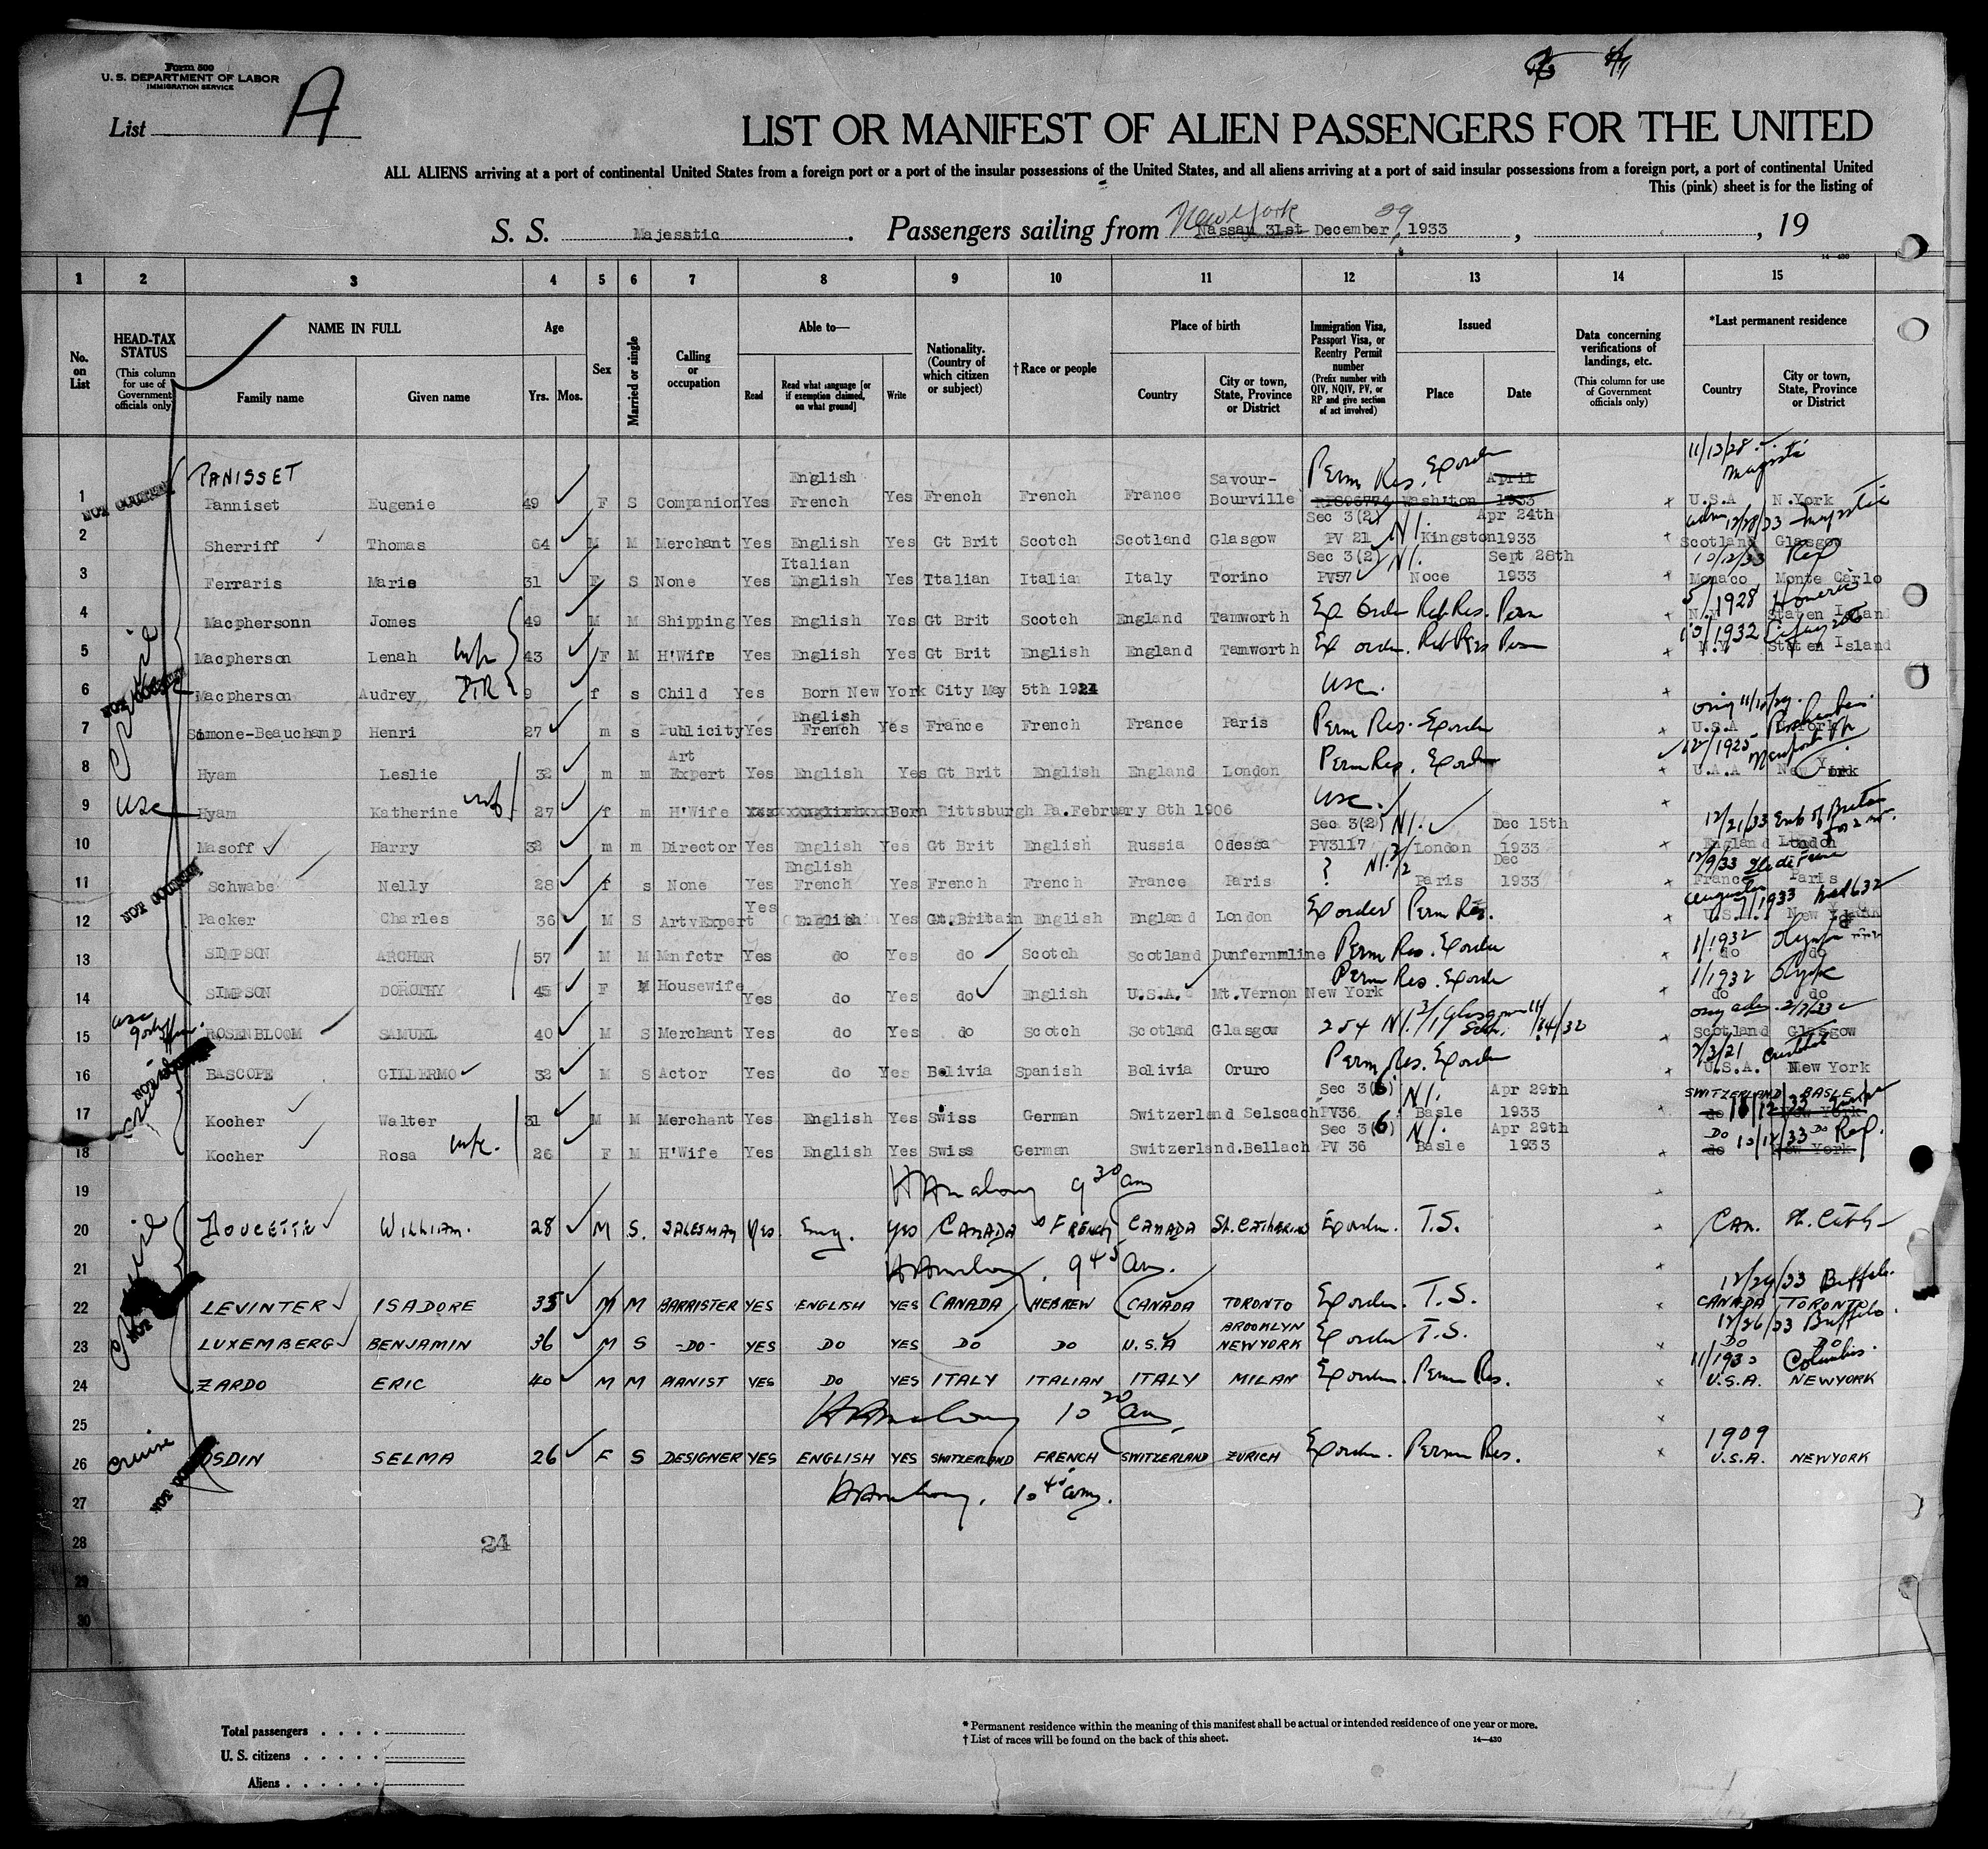 Form 500
U. S. DEPARTMENT OF LABOR
IMMIGRATION SERVICE
List A
LIST OR MANIFEST OF ALIEN PASSENGERS FOR THE UNITED
ALL ALIENS arriving at a port of continental United States from a foreign port or a port of the insular possessions of the United States, and all aliens arriving at a port of said insular possessions from a foreign port, a port of continental United
This (pink) sheet is for the listing of
S. S. Majesstic. Passengers sailing from New York Nassau 31st December 29, 1933, , 19
14—430
1 2 3 4 5 6 7 8 9 10 11 12 13 14 15
No. on List
HEAD-TAX STATUS (This column for use of Government officials only)
NAME IN FULL
Family name Given name
Age
Yrs. Mos.
Sex
Married or single
Calling or occupation
Able to—
Read Read what language [or if exemption claimed, on what ground] Write
Nationality. (Country of which citizen or subject)
†Race or people
Place of birth
Country City or town, State, Province or District
Immigration Visa, Passport Visa, or Reentry Permit number (Prefix number with QIV, NQIV, PV, or RP and give section of act involved)
Issued
Place Date
Data concerning verifications of landings, etc. (This column for use of Government officials only)
*Last permanent residence
Country City or town, State, Province or District
PANISSET English Savour- Perm Res. Exorder April 11/13/28 Majestic
1 Panniset Eugenie 49 F S Companion Yes French Yes French French France Bourville Wash'ton 1933 x U.S.A N.York
Sec 3(2) N1. Apr 24th 12/28/33 Majestic
2 Sherriff Thomas 64 M M Merchant Yes English Yes Gt Brit Scotch Scotland Glasgow PV 21 Kingston 1933 x Scotland Glasgow
Italian Sec 3(2) N1. Sept 28th 10/12/33 Rex
3 Ferraris Marie 31 F S None Yes English Yes Italian Italia Italy Torino PV57 Noce 1933 x Monaco Monte Carlo
5/1928 Homeric
4 Macphersonn Jomes 49 M M Shipping Yes English Yes Gt Brit Scotch England Tamworth Ex Order Ret Res. Perm x N.Y Staten Island
5 Macpherson Lenah wife 43 F M H'Wife Yes English Yes Gt Brit English England Tamworth Ex order. Ret Res Perm x N.Y. Staten Island
6 Macpherson Audrey DTR 9 f s Child Yes Born New York City May 5th 1924 USC. x
English orig 11/10/29.
7 Simone-Beauchamp Henri 27 m s Publicity Yes French Yes France French France Paris Perm Res. Exorder x U.S.A N.York
Art 12/1925
8 Hyam Leslie 32 m m Expert Yes English Yes Gt Brit English England London Perm Res. Exorder x U.A.A New York
9 USC Hyam Katherine wife 27 f m H'Wife Born Pittsburgh Pa.February 8th 1906 USC. x
Sec 3(2) N1. Dec 15th 12/21/33 Emb of Britain
10 Masoff Harry 32 m m Director Yes English Yes Gt Brit English Russia Odessa PV3117 London 1933 x England London
English ? Dec 12/9/33 Ile de France
11 Schwabe Nelly 28 f s None Yes French Yes French French France Paris Paris 1933 x France Paris
Yes
12 Packer Charles 36 M S Art Expert English Yes Gt.Britain English England London Exorder Perm Res. x U.S.A. New York
1/1932 Olympic
13 SIMPSON ARCHER 57 M M Mnfctr Yes do Yes do Scotch Scotland Dunfernmline Perm Res. Exorder x do do
1/1932 Olympic
14 SIMPSON DOROTHY 45 F M Housewife Yes do Yes do English U.S.A. Mt.Vernon New York Perm Res. Exorder x do do
15 ROSENBLOOM SAMUEL 40 M S Merchant Yes do Yes do Scotch Scotland Glasgow 254 N1. Glasgow x Scotland Glasgow
16 BASCOPE GILLERMO 32 M S Actor Yes do Yes Bolivia Spanish Bolivia Oruro Perm Res. Exorder x U.S.A. New York
Sec 3(6) N1. Apr 29th SWITZERLAND BASLE
17 Kocher Walter 31 M M Merchant Yes English Yes Swiss German Switzerland Selscach PV36 Basle 1933 x do New York
Sec 3(6) N1. Apr 29th DO 10/12/33 DO Rex.
18 Kocher Rosa wife. 26 F M H'Wife Yes English Yes Swiss German Switzerland.Bellach PV 36 Basle 1933 x do New York
19 9 30 am x
20 DOUCETTE WILLIAM. 28 M S. SALESMAN YES Eng. YES CANADA FRENCH CANADA St. CATHERINE Exorder. T.S. x CAN.
21 9 45 am. x
12/26/33 Buffalo.
22 LEVINTER ISADORE 35 M M BARRISTER YES ENGLISH YES CANADA HEBREW CANADA TORONTO Exorder. T.S. x CANADA TORONTO
BROOKLYN 12/26/33 Buffalo.
23 LUXEMBERG BENJAMIN 36 M S -DO- YES DO YES DO DO U.S.A NEWYORK Exorder T.S. x DO DO
Columbus.
24 ZARDO ERIC 40 M M PIANIST YES DO YES ITALY ITALIAN ITALY MILAN Exorder. Perm Res. x U.S.A. NEWYORK
25 10 20 am x
1909
26 Cruise OSDIN SELMA 26 F S DESIGNER YES ENGLISH YES SWITZERLAND FRENCH SWITZERLAND ZURICH Exorder. Perm Res. x U.S.A. NEWYORK
27 10 45 am.
28 24
29
30
Total passengers . . . .
U. S. citizens . . . . .
Aliens . . . . . .
* Permanent residence within the meaning of this manifest shall be actual or intended residence of one year or more.
† List of races will be found on the back of this sheet. 14—430